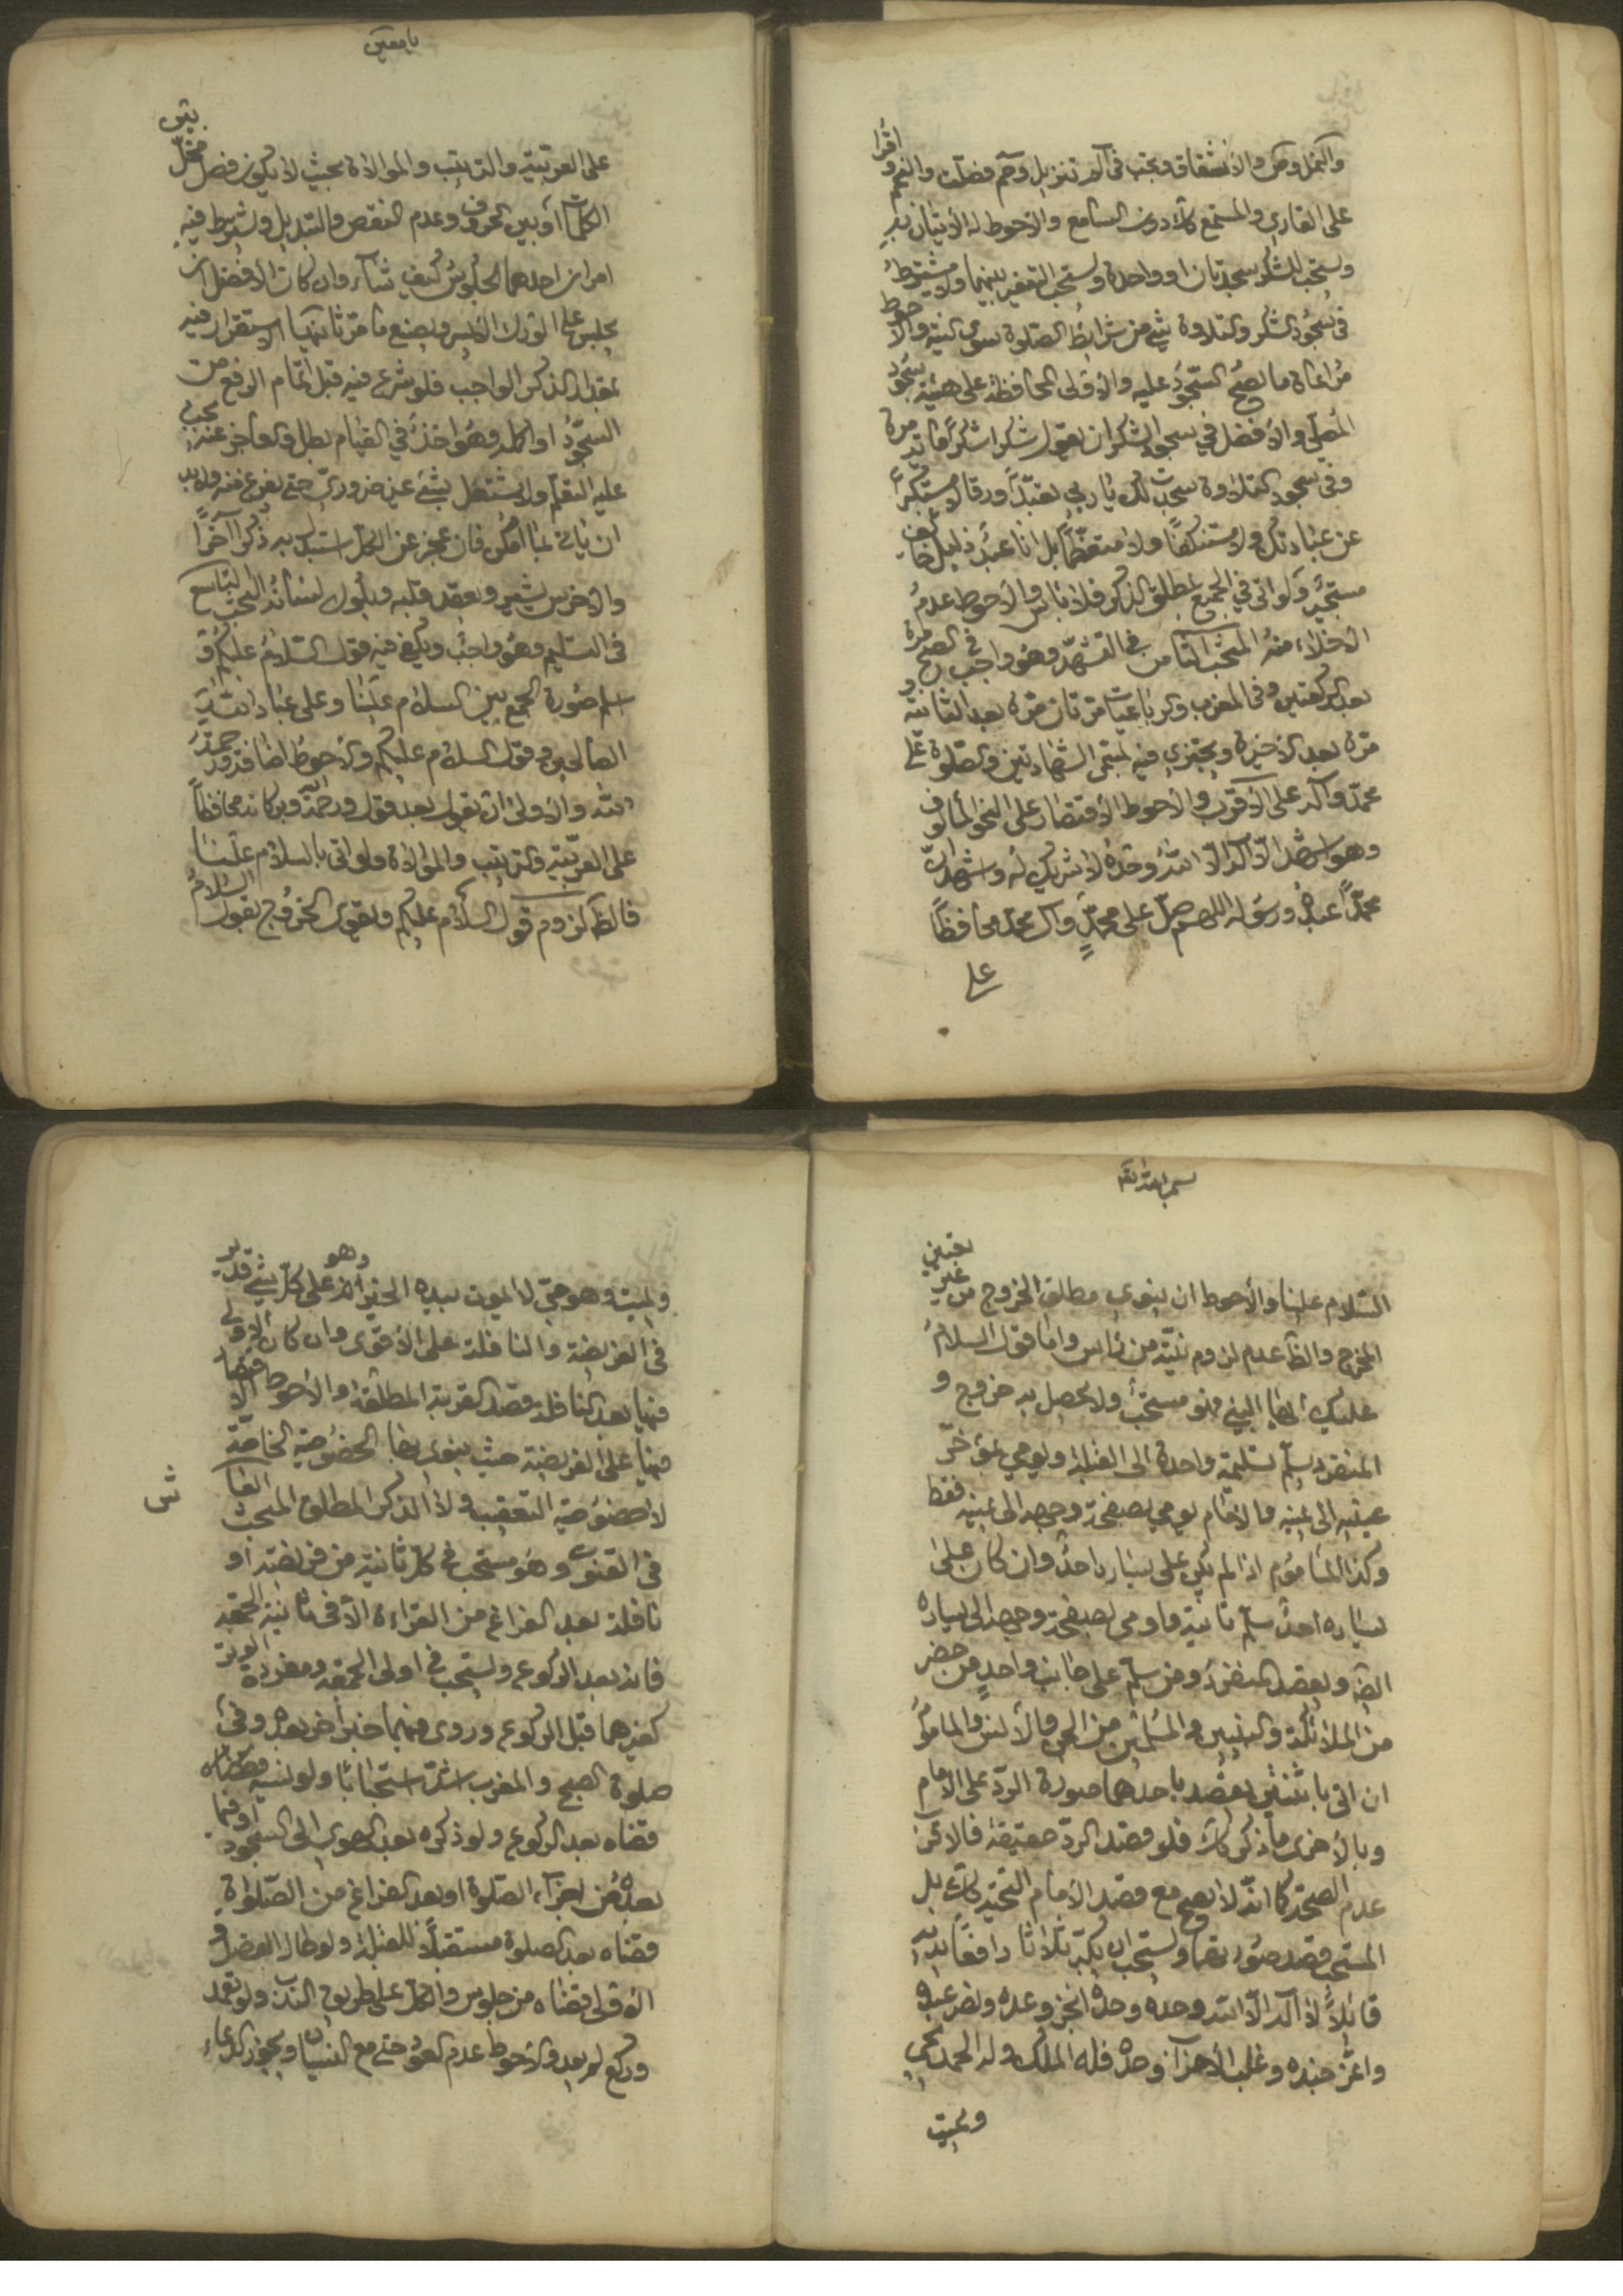 والنمل وص والانشقاق ويجب في الم تنزيل وحم فصلت والنجم واقرأ
على القاري والمستمع كلا دون السامع والاحوط له الاتيان به
ويستحب للشكر سجدتان او واحدة ويستحب التعفير بينهما ولا يشترط
في سجود الشكر والتلاوة شئ من شرايط الصلوة سوى النية والاحوط
مراعاة ما يصح السجود عليه والاولى المحافظة على هيئة سجود
المصلي والافضل في سجود الشكر ان يقول شكرا شكرا مأة مرة
وفي سجود التلاوة سجدت لك يا رب تعبدا ورقا لا مستكبرا
عن عبادتك ولا مستنكفا ولا متعظما بل انا عبد ذليل خائف
مستجير ولو اتى في الجميع بمطلق الذكر فلا باس والاحوط عدم
الاخلاء منه المبحث الثامن في التشهد وهو واجب في الصبح مرة
بعد الركعتين وفي المغرب والرباعيات مرتان مرة بعد الثانية و
مرة بعد الاخيرة ويجتزي فيه بمسمى الشهادتين والصلوة على
محمد وآله على الاقرب والاحوط الاقتصار على النحو المألوف
وهو اشهد ان لا اله الا الله وحده لا شريك له واشهد ان
محمدا عبده ورسوله اللهم صل على محمد وآل محمد محافظا
على
يا معين
على العربية والترتيب والموالاة بحيث لا يكون فصل مخل بين
الكلمات او بين الحروف وعدم النقص والتبديل ويشترط فيه
امران احدهما الجلوس كيف شاء وان كان الافضل ان
يجلس على الورك الايسر ويصنع ما مر ثانيهما الاستقرار فيه
بمقدار الذكر الواجب فلو شرع فيه قبل اتمام الرفع من
السجود او اكمله وهو اخذ في القيام بطل والعاجز عنه يجب
عليه التعلم ولا يشتغل بشئ غير ضروري حتى يفرغ منه ولا بد
ان ياتي بما امكن فان عجز عن الكل استبدل به ذكرا آخرا
والاخرس يشير ويعقد قلبه ويلوك لسانه المبحث التاسع
في التسليم وهو واجب ويكفي فيه قول السلام عليكم و
اسلم صورة الجمع بين السلام علينا وعلى عباد الله
الصالحين وقول السلام عليكم والاحوط اضافة ورحمة
الله والاولى ان يقول بعد قول ورحمة الله وبركاته محافظا
على العربية والترتيب والموالاة ولو اتى بالسلام علينا
فالظ لزوم قول السلام عليكم وينوى الخروج بقول السلام
بسم الله تعالى
السلام علينا والاحوط ان ينوي مطلق الخروج من غير تعيين
المخرج والظ عدم لزوم نيته من راس واما قول السلام
عليك ايها النبي فهو مستحب ولا يحصل به خروج و
المنفرد يسلم تسليمة واحدة الى القبلة ويومي بمؤخر
عينيه الى يمينه والامام يومي بصفحة وجهه الى يمينه فقط
وكذا الماموم اذا لم يكن على يساره احد وان كان على
يساره احد سلم ثانية واومى بصفحة وجهه الى يساره
ايضا ويقصد المنفرد ومن سلم على جانب واحد من حضر
من الملائكة والنبيين والمسلمين من الجن والانس والماموم
ان اتى باثنتين يقصد باحدهما صورة الرد على الامام
وبالاخرى ما ذكر كك فلو قصد الرد حقيقة فالاقرب
عدم الصحة كما انه لا يصح مع قصد الامام التحية كك بل
المستحب قصد صورتهما ويستحب ان يكبر ثلاثا رافعا يديه
قائلا لا اله الا الله وحده وحده انجز وعده ونصر عبده
واعز جنده وغلب الاحزاب وحده فله الملك وله الحمد يحيي
ويميت
ويميت وهو حي لا يموت بيده الخير وهو على كل شئ قدير
في الفريضة والنافلة على الاقوى وان كان الاولى
فيها بعد النافلة قصد القربة المطلقة والاحوط الاقتصار
فيها على الفريضة حيث ينوى بها الخصوصية الخاصة
لا خصوصية التعقيب ولا الذكر المطلق المبحث العاشر
في القنوت وهو مستحب في كل ثانية من فريضة او
نافلة بعد الفراغ من القراءة الا في ثانية الجمعة
فانه بعد الركوع ويستحب في اولى الجمعة ومفردة الوتر
كغيرهما قبل الركوع وروى فيهما خبر اخر بعده وفي
صلوة الصبح والمغرب اشد استحبابا ولو نسيه قضاه
قضاه بعد الركوع ولو ذكره بعد الهوي الى السجود او فيما
بعده من اجزاء الصلوة او بعد الفراغ من الصلوات
قضاه بعد الصلوة مستقبلا للقبلة ولو طال الفصل و
الاولى قضاه من جلوس والكل على طريق الندب ولو تعمد
وركع لم يعد والاحوط عدم العود حتى مع النسيان ويجوز الدعاء